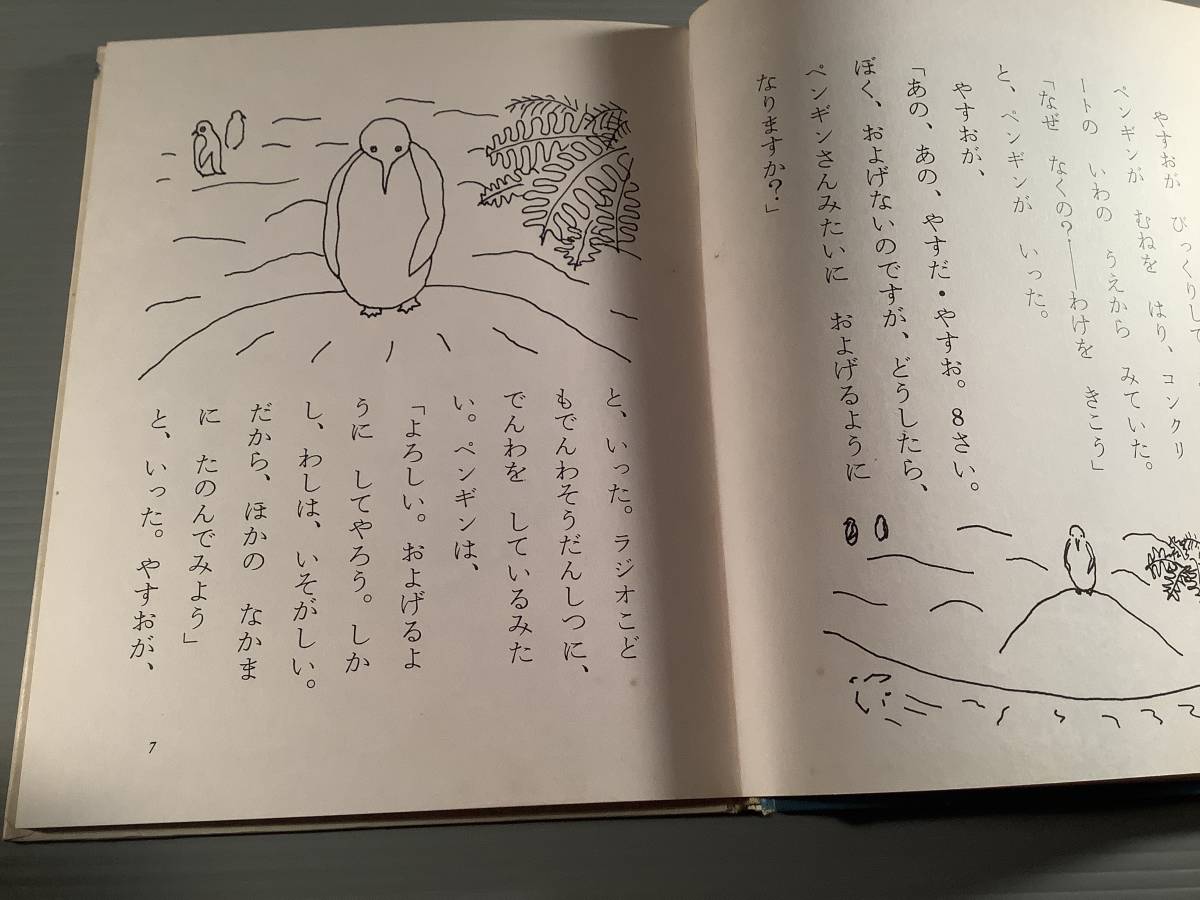 やすおが びっくりして
ペンギンが むねを はり、コンクリ
ートの いわの うえから みていた。
「なぜ なくの？――わけを きこう」
と、ペンギンが いった。
やすおが、
「あの、あの、やすだ・やすお。8さい。
ぼく、およげないのですが、どうしたら、
ペンギンさんみたいに およげるように
なりますか？」
と、いった。ラジオこど
もでんわそうだんしつに、
でんわを しているみた
い。ペンギンは、
「よろしい。およげるよ
うに してやろう。しか
し、わしは、いそがしい。
だから、ほかの なかま
に たのんでみよう」
と、いった。やすおが、
7